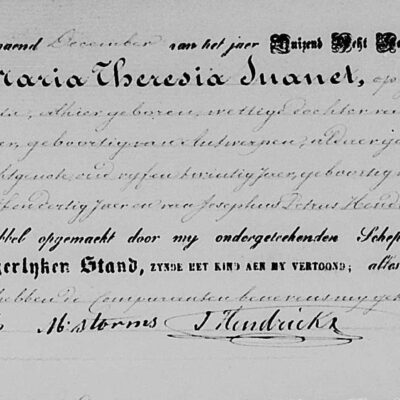 maend December van het jaer Duizend Acht
Maria Theresia Suanet,
alhier geboren, wettige dochter van
geboortig van Antwerpen, aldaer
oud vyf en twintig jaer, geboortig
dertig jaer en van Josephus Petrus Hend
bbel opgemaekt door my ondergeteekenden Schep
gerlyken Stand, ZYNDE HET KIND AEN MY VERTOOND; alles
hebben de Comparanten benevens my
M. storms J Hendrickx